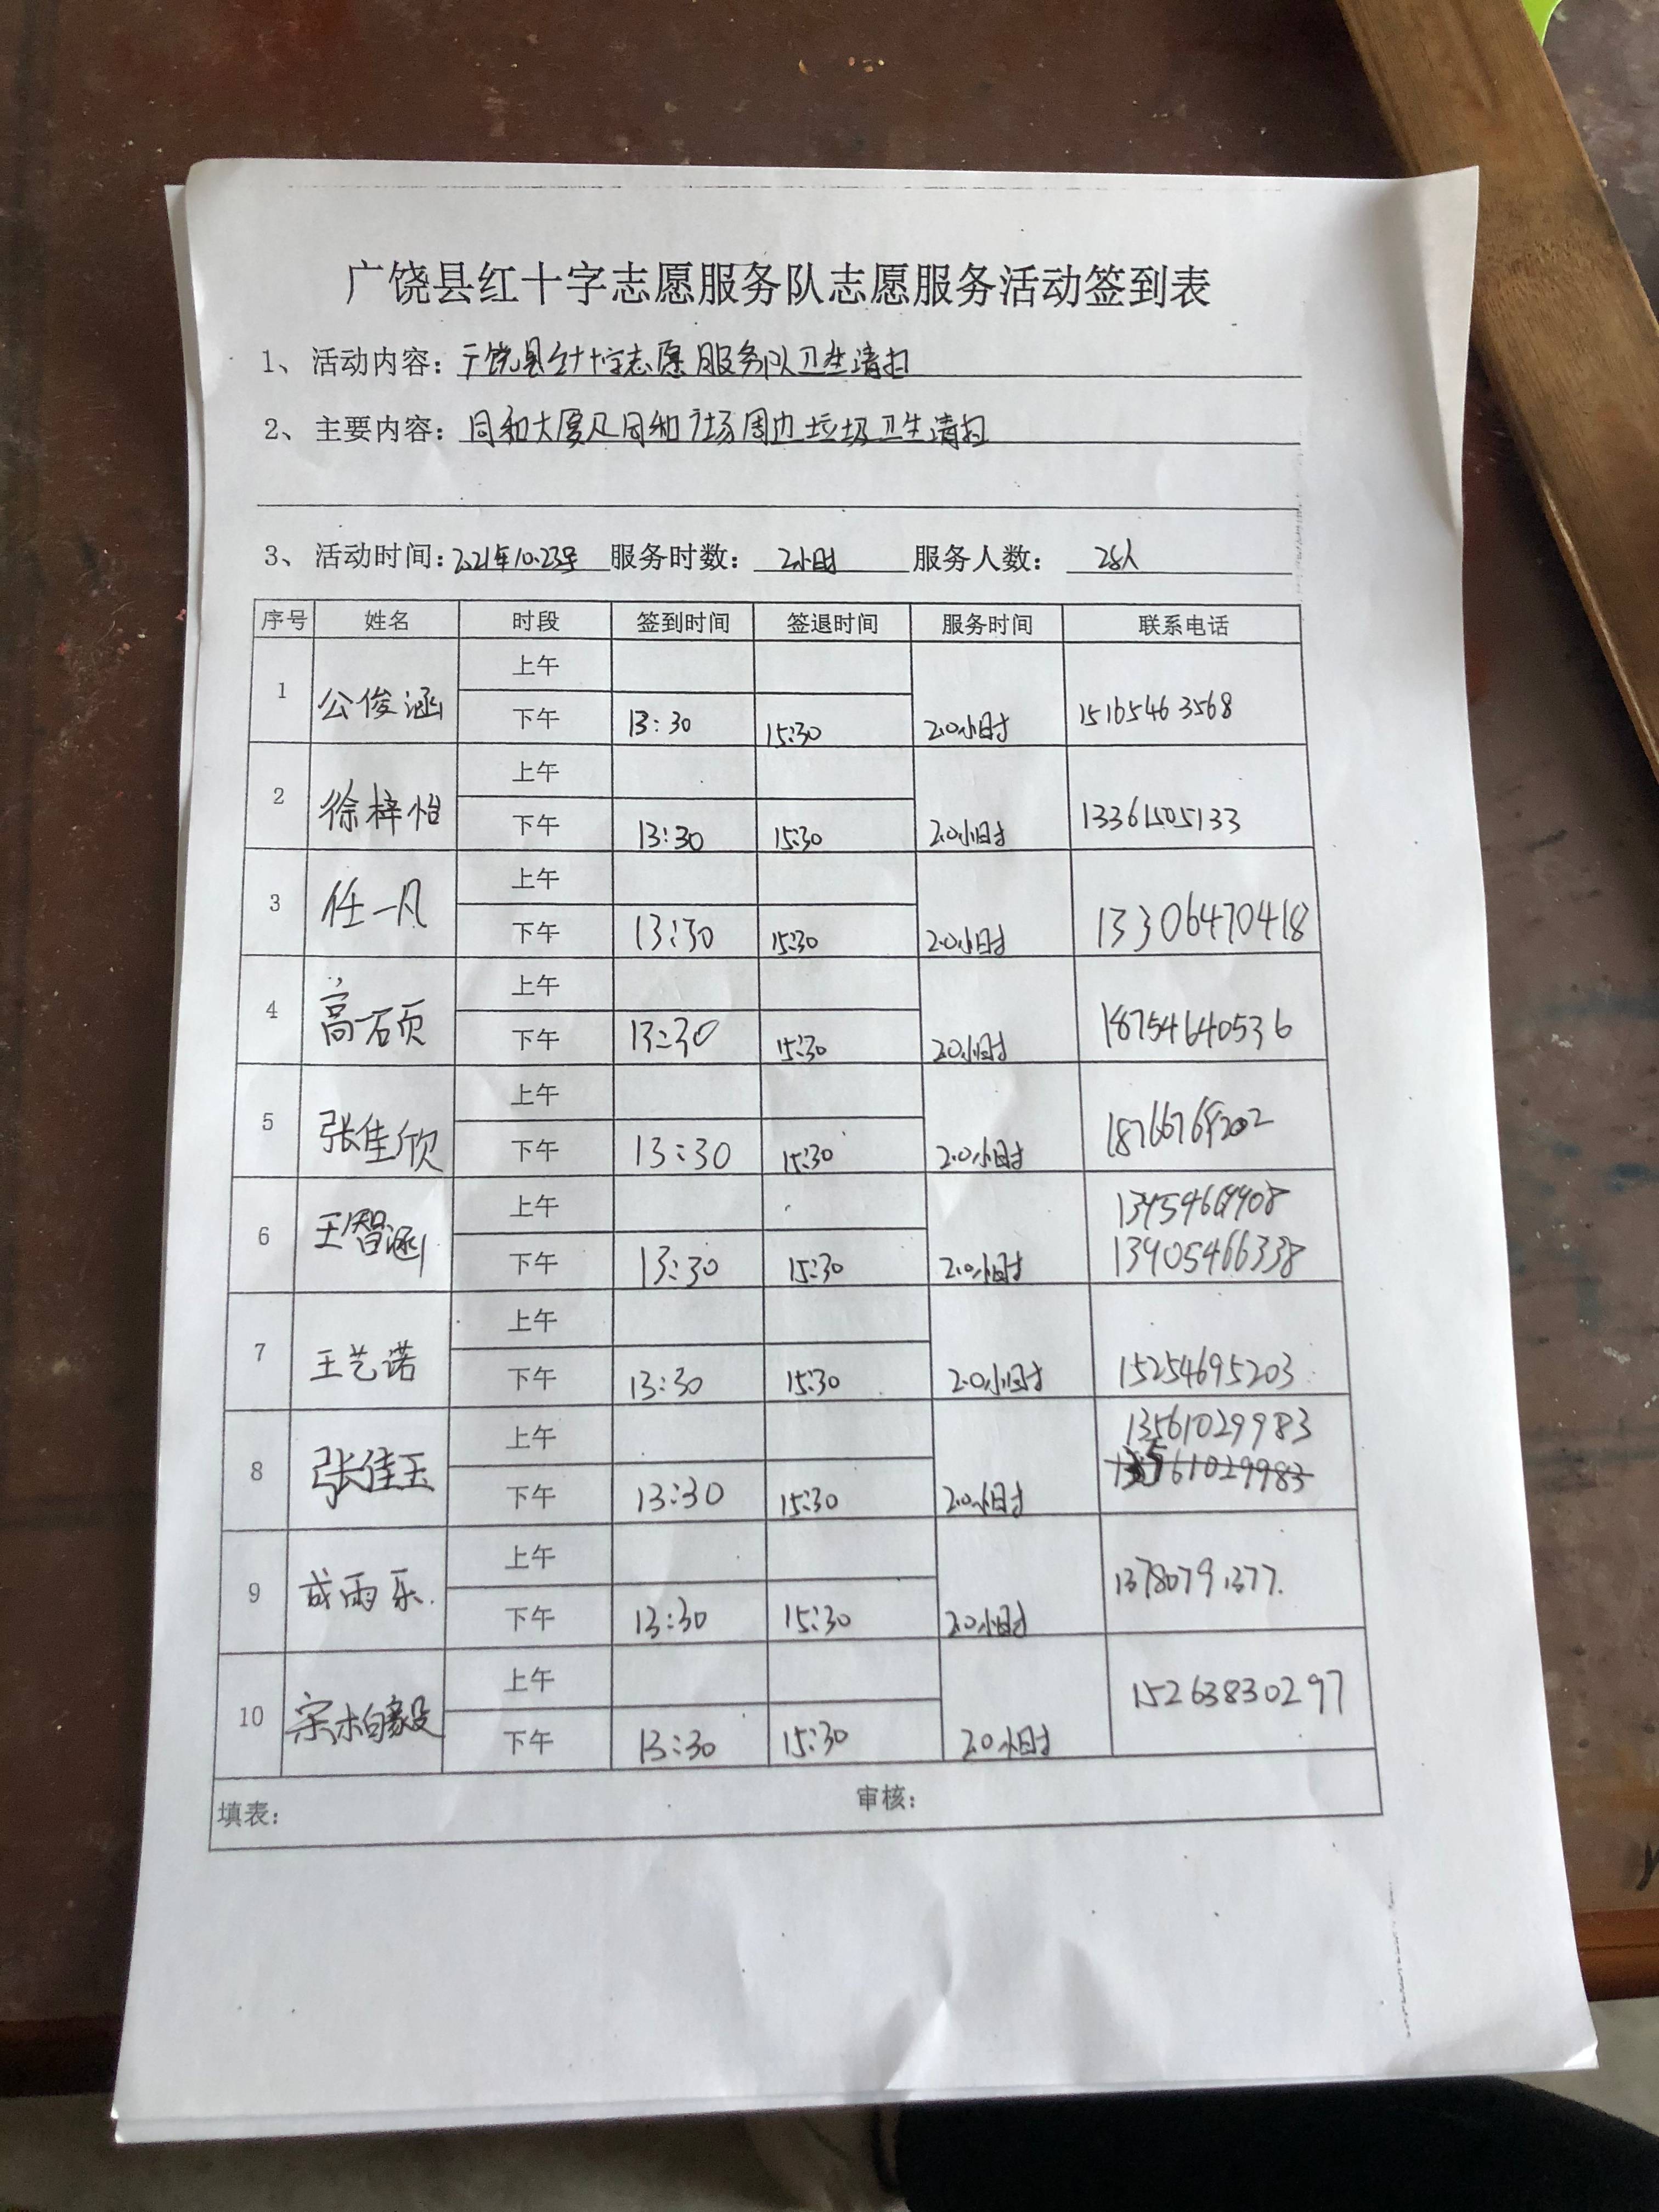 广饶县红十字志愿服务队志愿服务活动签到表
1、活动内容：广饶县红十字志愿服务队卫生清扫
2、主要内容：同和大厦及同和广场周边垃圾卫生清扫
3、活动时间：2021年10.23号 服务时数：2小时 服务人数：28人
序号 姓名 时段 签到时间 签退时间 服务时间 联系电话
1 公俊涵 上午
下午 13:30 15:30 2.0小时 15165463568
2 徐梓怡 上午
下午 13:30 15:30 2.0小时 13361505133
3 任一凡 上午
下午 13:30 15:30 2.0小时 13306470418
4 高硕 上午
下午 13:30 15:30 2.0小时 18754640536
5 张佳欣 上午
下午 13:30 15:30 2.0小时
6 王智涵 上午
下午 13:30 15:30 2.0小时 13905466338
7 王艺诺 上午
下午 13:30 15:30 2.0小时 15254695203
8 张佳玉 上午 13561029983
下午 13:30 15:30 2.0小时 13561029983
9 成雨乐 上午
下午 13:30 15:30 2.0小时 13780791377
10 宗柏毅 上午
下午 13:30 15:30 2.0小时 15263830297
填表： 审核：